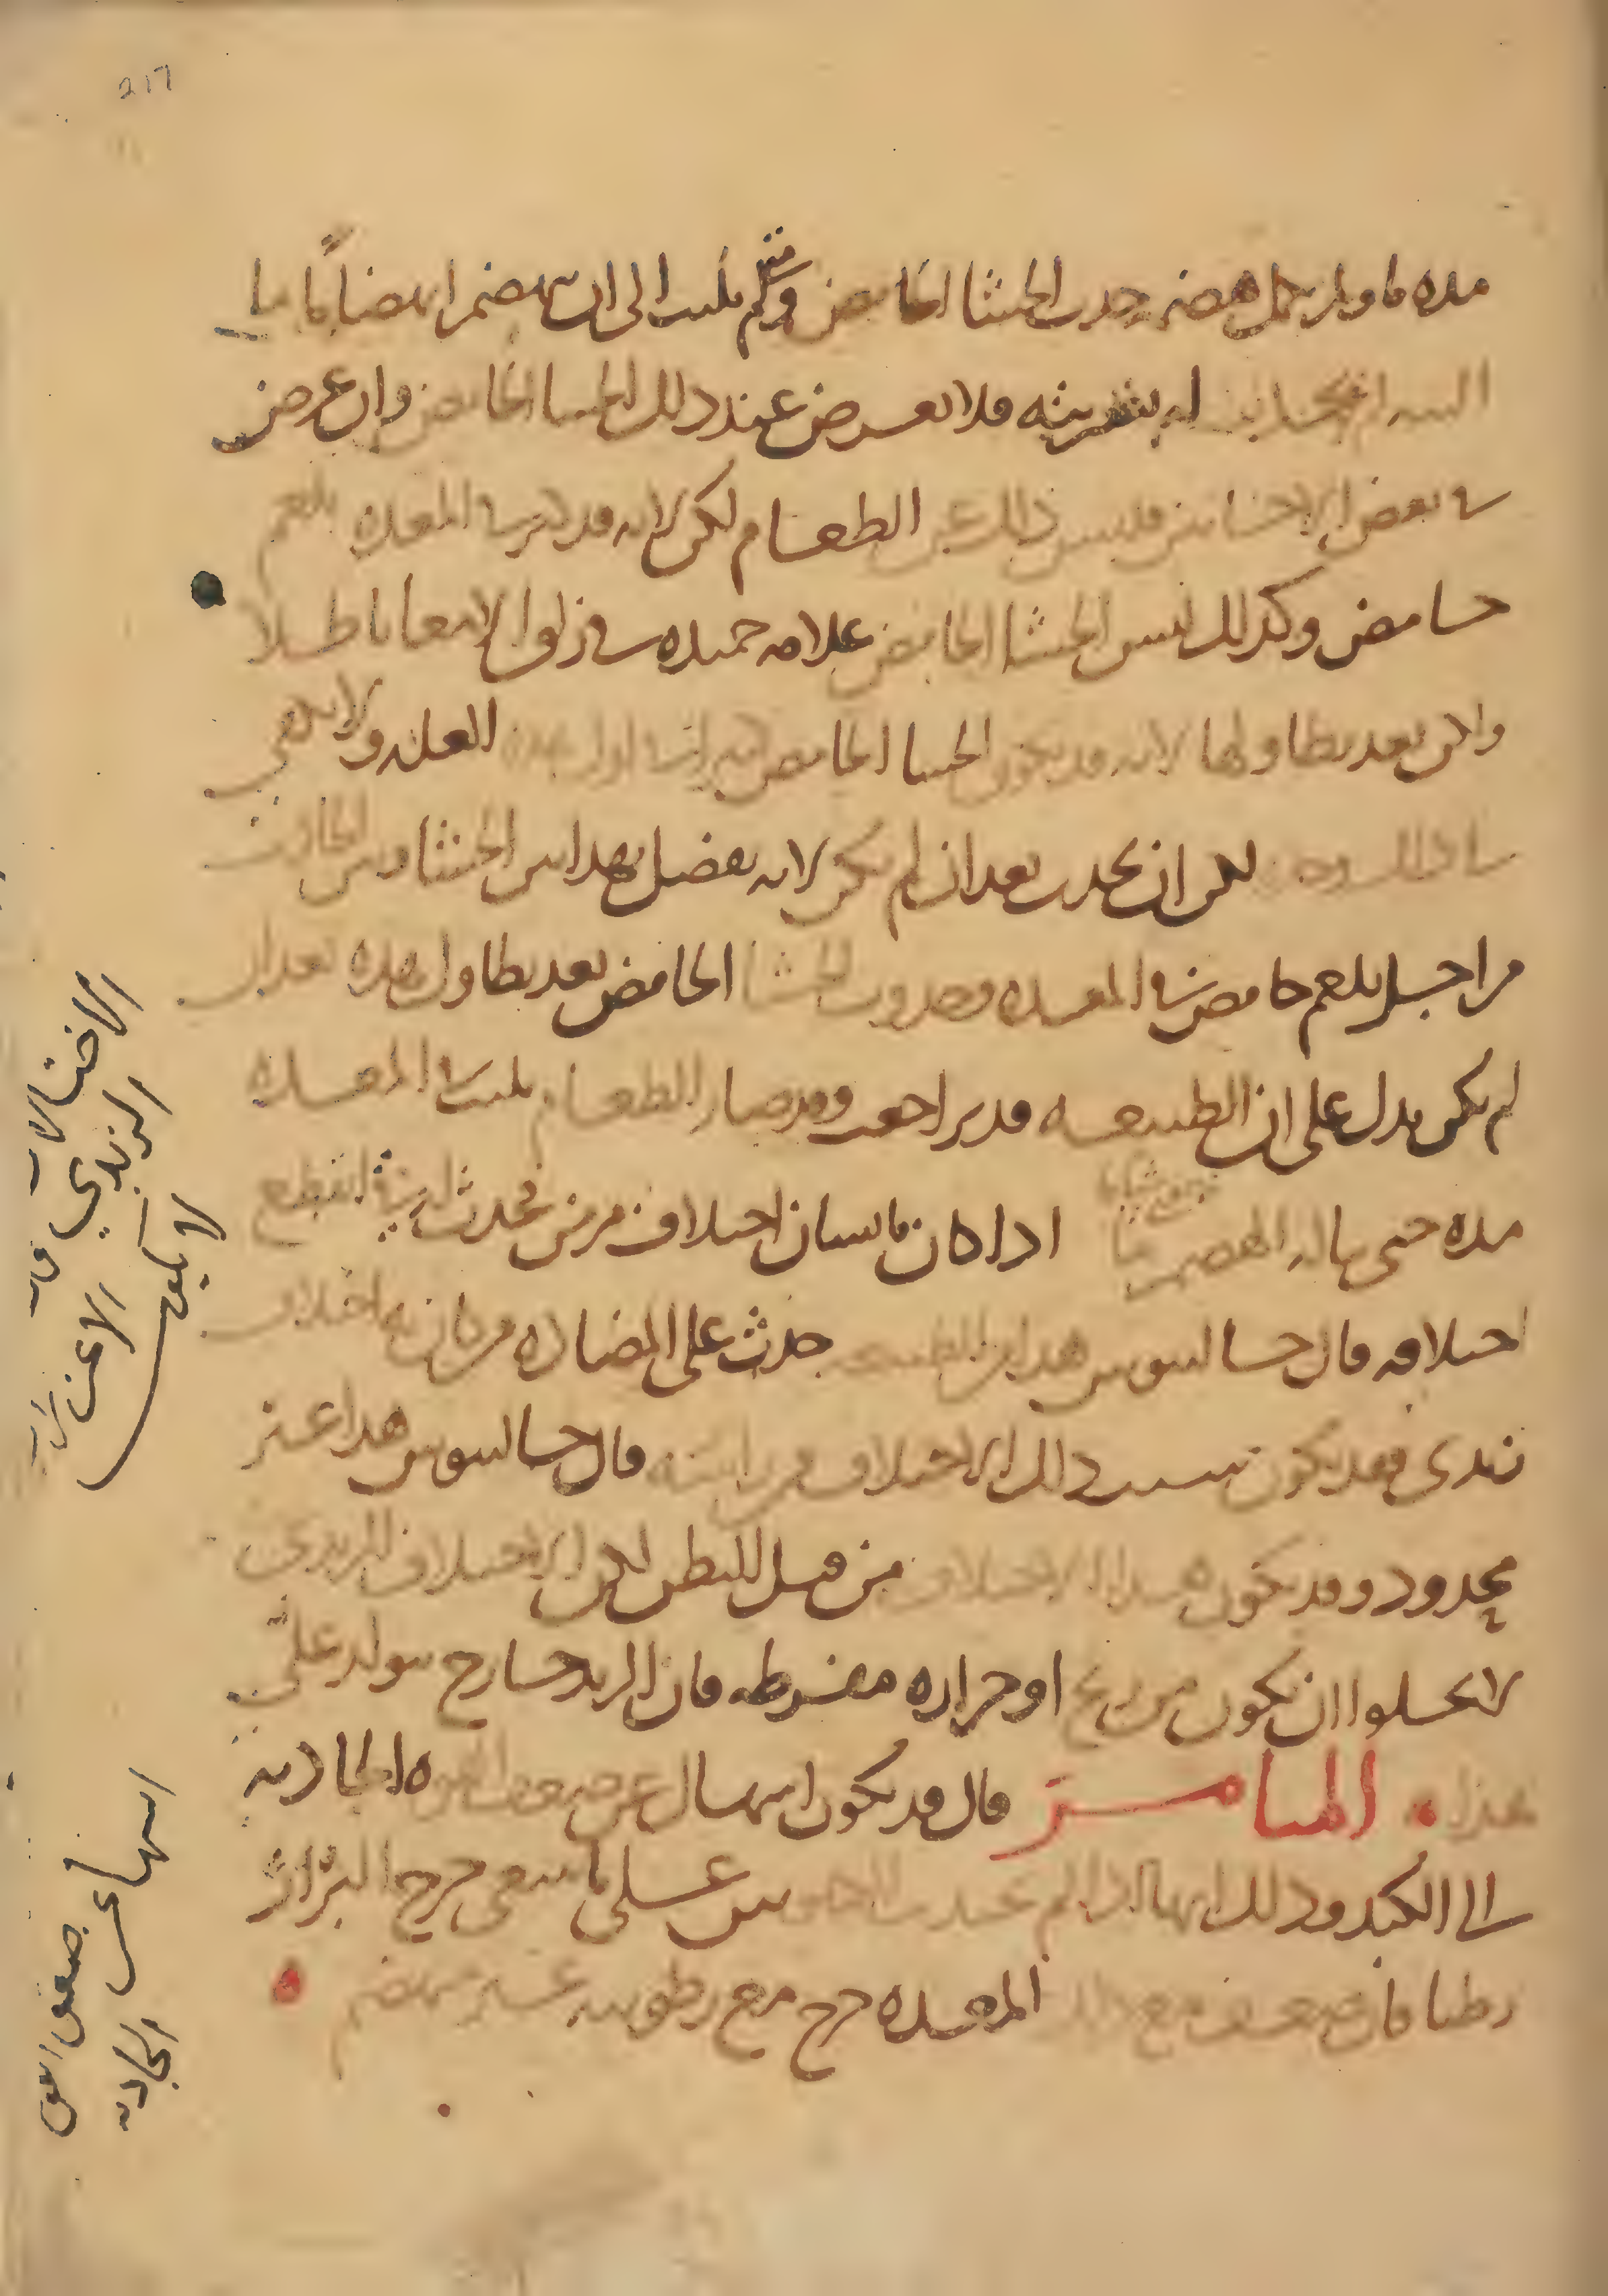 217
مده ما ولم يكمل هضمه حدث الجشا الحامض ومتى لم يلبث الى ان ينهضم انهضاما ما
البته لم يحدث البته فلا يعرض عند ذلك الجشا الحامض وان عرض
في بعض الاحايين فليس ذلك عن الطعام لكن لانه قد المعده بلغم
حامض وكذلك ليس الجشا الحامض علامه حميده في زلق الامعا باطلا
ولكن بعد تطاولها لانه قد يكون الجشا الحامض اول هذه العله ولا ينبغي
لكن ان يحدث بعد ان لم يكن لانه يفصل بهذا بين الجشا وبين الحادث
من اجل بلغم حامض في المعده وحدوث الجشا الحامض بعد تطاول هذه بعد ان
لم يكن يدل على ان الطبيعه قد تراجعت وقد صار الطعام يلبث في المعده
مده حتى يناله الهضم اذا كان بانسان اختلاف مرض فحدث انقطع
اختلافه قال جالينوس هذا الطبيعه حدث على المضاده من كان به اختلاف
زبدي فقد يكون سبب ذلك الاختلاف من راسه قال جالينوس هذا غير
محدود وقد يكون هذا الاختلاف من قبل البطن لكن الاختلاف الزبدي
لا يخلوا ان يكون من ريح او حراره مفرطه فان الزبد خارج يتولد على
هذا الميامر قال قد يكون اسهال عن ضعف القوه الجاذبه
التي الى الكبد وذلك انها اذا لم تجذب الكيموس على ما ينبغي خرج البراز
رطبا فان ضعفت مع ذلك المعده خرج مع رطوبته غير منهضم
الاختلاف
الزبدي قد
لا يكون
الا عن
اسهال عن
ضعف القوه
الجاذبه